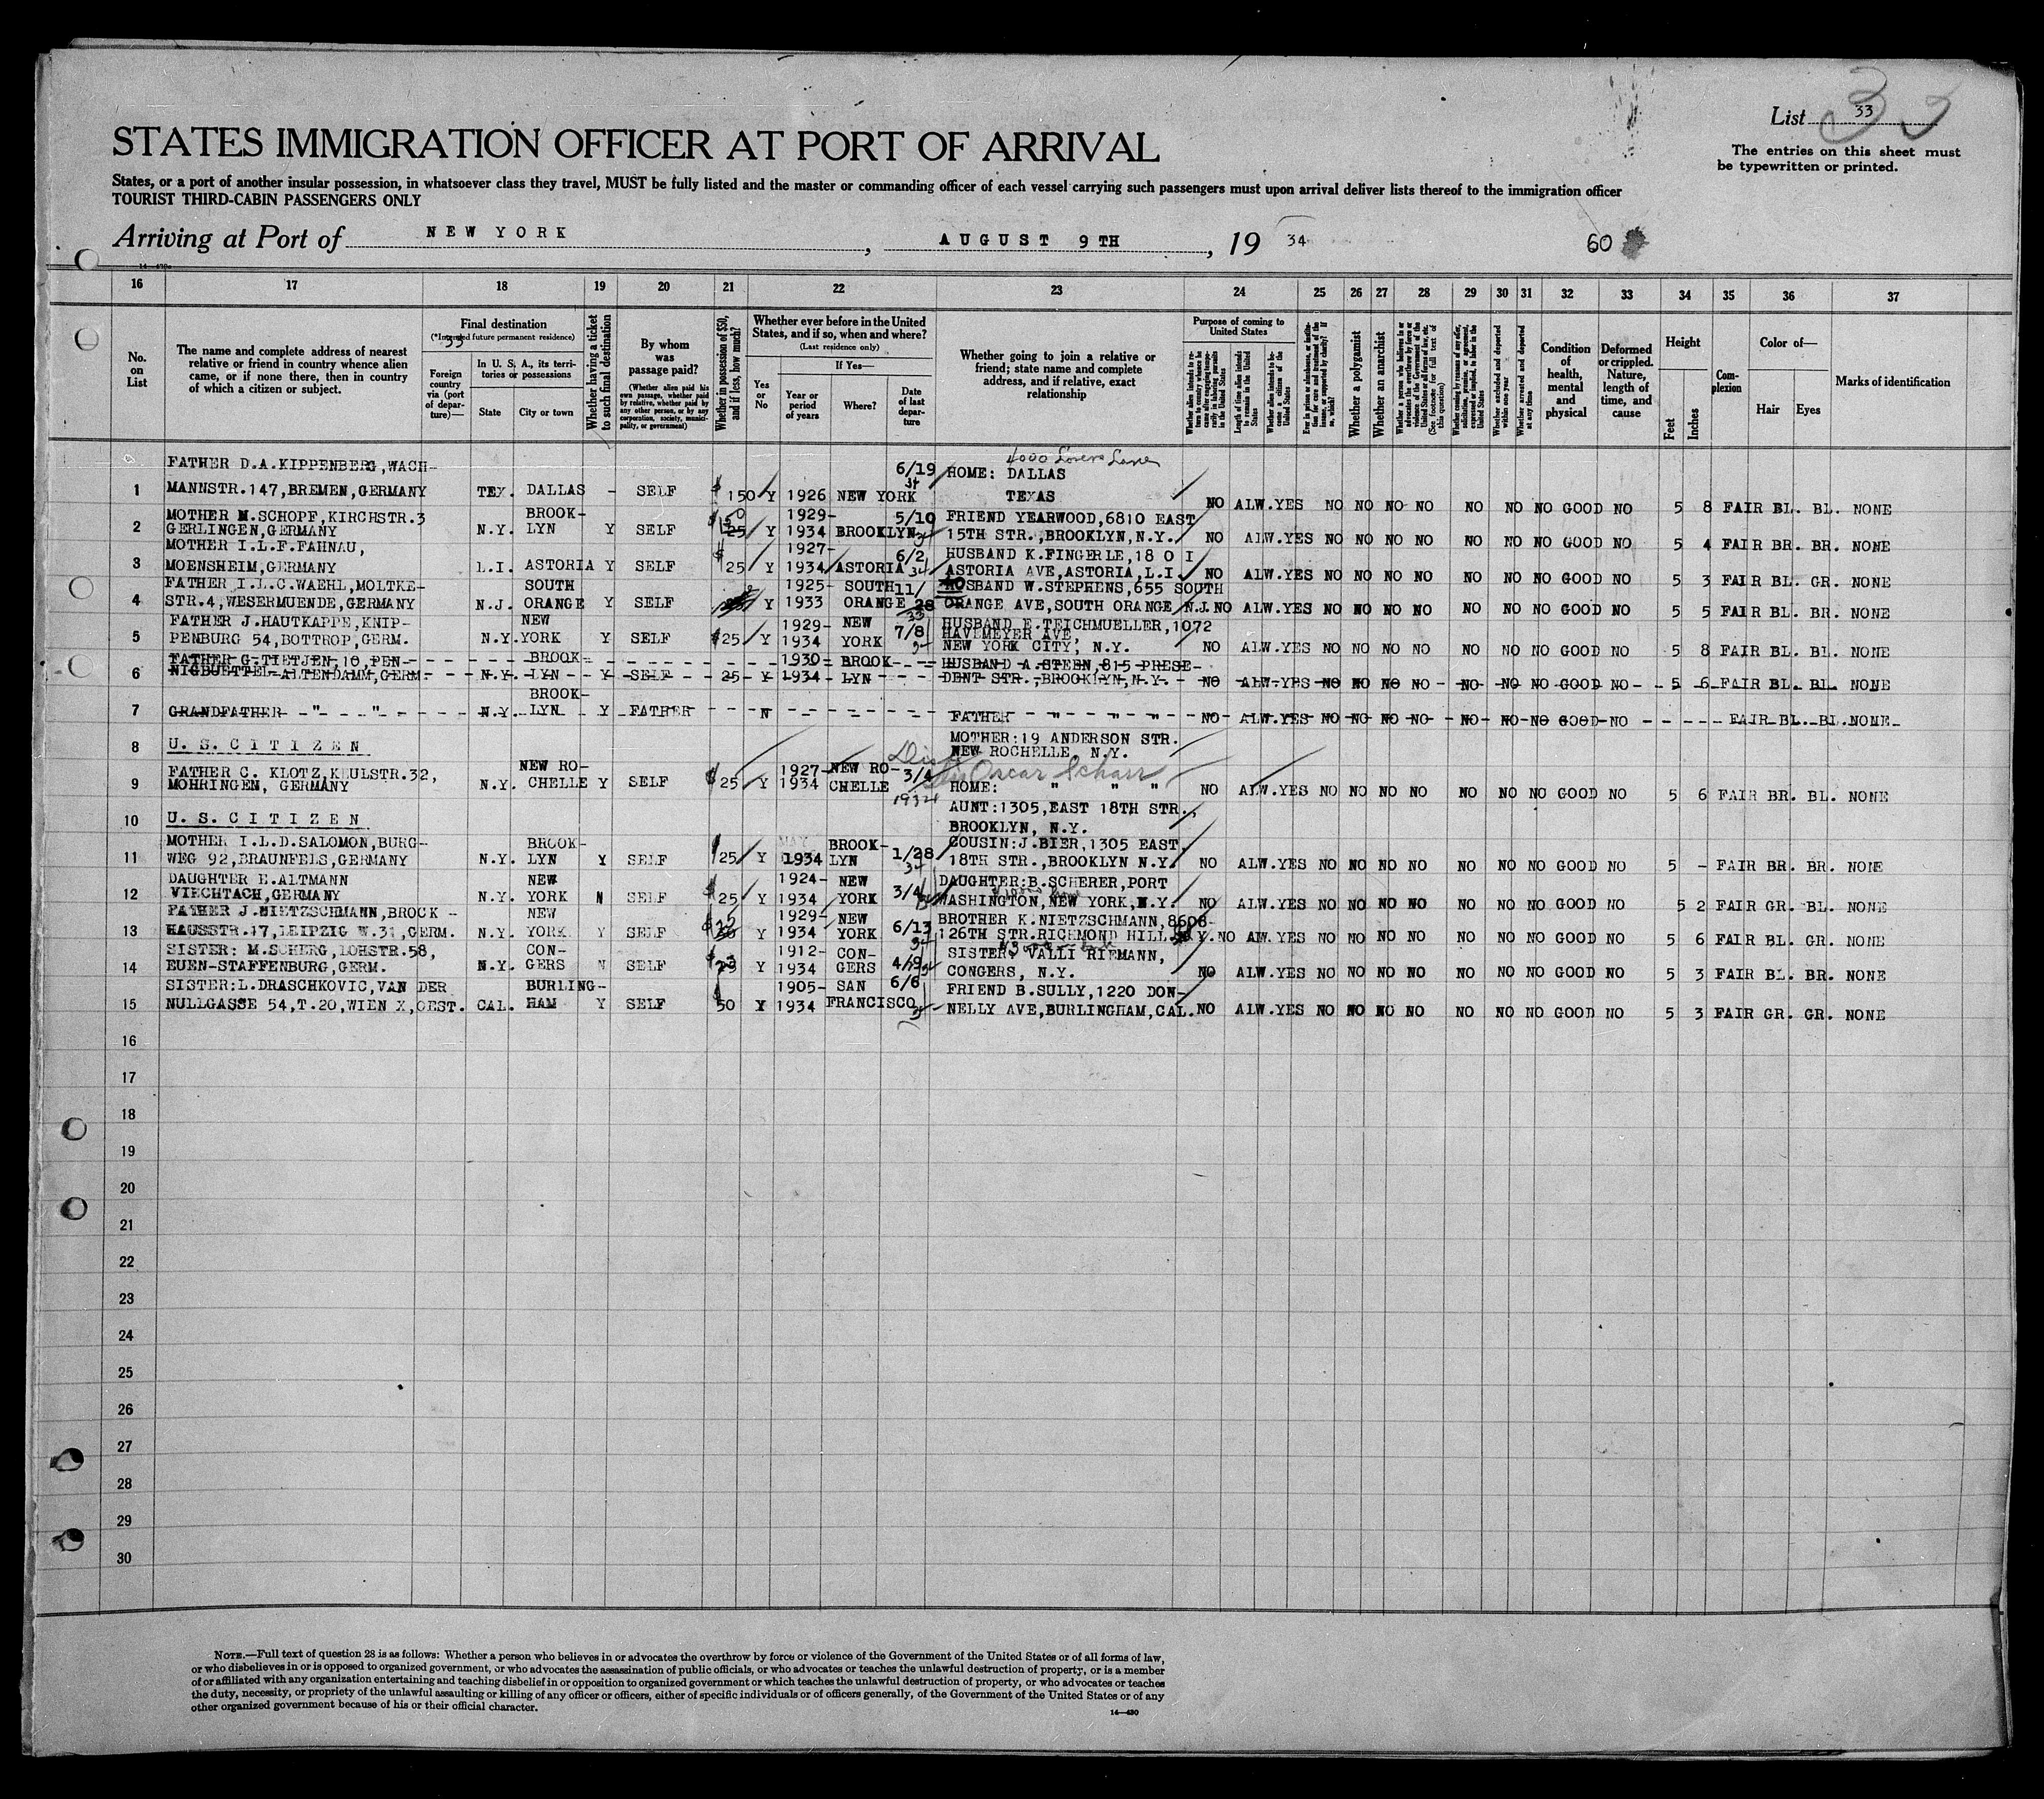 List 33
The entries on this sheet must
be typewritten or printed.
STATES IMMIGRATION OFFICER AT PORT OF ARRIVAL
States, or a port of another insular possession, in whatsoever class they travel, MUST be fully listed and the master or commanding officer of each vessel carrying such passengers must upon arrival deliver lists thereof to the immigration officer
TOURIST THIRD-CABIN PASSENGERS ONLY
Arriving at Port of NEW YORK, AUGUST 9TH, 19 34
60
16 17 18 19 20 21 22 23 24 25 26 27 28 29 30 31 32 33 34 35 36 37
No. on List
The name and complete address of nearest relative or friend in country whence alien came, or if none there, then in country of which a citizen or subject.
Final destination
(*Intended future permanent residence)
Foreign country via (port of departure)—
In U. S. A., its territories or possessions
State City or town
Whether having a ticket to such final destination
By whom was passage paid?
(Whether alien paid his own passage, whether paid by relative, whether paid by any other person, or by any corporation, society, municipality, or government)
Whether in possession of $50, and if less, how much?
Whether ever before in the United States, and if so, when and where?
(Last residence only)
Yes or No
If Yes—
Year or period of years
Where?
Date of last departure
Whether going to join a relative or friend; state name and complete address, and if relative, exact relationship
Purpose of coming to United States
Length of time alien intends to remain in the United States
Whether alien intends to become a citizen of the United States
Whether a polygamist
Whether an anarchist
Condition of health, mental and physical
Deformed or crippled. Nature, length of time, and cause
Height
Feet Inches
Complexion
Color of—
Hair Eyes
Marks of identification
FATHER D.A.KIPPENBERG,WACH- 6/19 HOME: DALLAS
1 MANNSTR.147,BREMEN,GERMANY TEX. DALLAS - SELF $150 Y 1926 NEW YORK 34 TEXAS NO ALW.YES NO NO NO NO NO NO NO GOOD NO 5 8 FAIR BL. BL. NONE
MOTHER M.SCHOPF,KIRCHSTR.3 BROOK- 1929- 5/10 FRIEND YEARWOOD,6810 EAST
2 GERLINGEN,GERMANY N.Y. LYN Y SELF 25 Y 1934 BROOKLYN 34 15TH STR.,BROOKLYN,N.Y. NO ALW.YES NO NO NO NO NO NO NO GOOD NO 5 4 FAIR BR. BR. NONE
MOTHER I.L.F.FAHNAU, 1927- 6/2 HUSBAND K.FINGERLE,18 0 I
3 MOENSHEIM,GERMANY L.I. ASTORIA Y SELF $25 Y 1934 ASTORIA 34 ASTORIA AVE,ASTORIA,L.I. NO ALW.YES NO NO NO NO NO NO NO GOOD NO 5 3 FAIR BL. GR. NONE
FATHER I.L.C.WAEHL,MOLTKE- SOUTH 1925- SOUTH 11/ HUSBAND W.STEPHENS,655 SOUTH
4 STR.4,WESERMUENDE,GERMANY N.J. ORANGE Y SELF Y 1933 ORANGE 28 33 ORANGE AVE,SOUTH ORANGE N.J. NO ALW.YES NO NO NO NO NO NO NO GOOD NO 5 5 FAIR BL. BR. NONE
FATHER J.HAUTKAPPE,KNIP- NEW 1929- NEW 7/8 HUSBAND E.TEICHMUELLER,1072
HAVEMEYER AVE,
5 PENBURG 54,BOTTROP,GERM. N.Y. YORK Y SELF $25 Y 1934 YORK 34 NEW YORK CITY, N.Y. NO ALW.YES NO NO NO NO NO NO NO GOOD NO 5 8 FAIR BL. BL. NONE
FATHER G.TIETJEN,10,PEN- BROOK- 1930- BROOK- HUSBAND A.STEEN,815 PRESE-
6 NIGBUETTEL-ALTENDAMM,GERM. N.Y. LYN Y SELF 25 Y 1934 LYN DENT STR.,BROOKLYN,N.Y. NO ALW.YES NO NO NO NO NO NO NO GOOD NO 5 6 FAIR BL. BL. NONE
BROOK-
7 GRANDFATHER " " N.Y. LYN Y FATHER N - - - FATHER " " " NO ALW.YES NO NO NO NO NO NO NO GOOD NO FAIR BL. BL. NONE
MOTHER:19 ANDERSON STR.
8 U. S. C I T I Z E N NEW ROCHELLE, N.Y.
Oscar Scharr
FATHER C. KLOTZ,KEULSTR.32, NEW RO- 1927- NEW RO- 3/4
9 MOHRINGEN, GERMANY N.Y. CHELLE Y SELF $25 Y 1934 CHELLE 1934 HOME: " " " NO ALW.YES NO NO NO NO NO NO NO GOOD NO 5 6 FAIR BR. BL. NONE
AUNT:1305,EAST 18TH STR.,
10 U. S. C I T I Z E N BROOKLYN, N.Y.
MOTHER I.L.D.SALOMON,BURG- BROOK- MAY BROOK- 1/28 COUSIN:J.BIER,1305 EAST
11 WEG 92,BRAUNFELS,GERMANY N.Y. LYN Y SELF 25 Y 1934 LYN 34 18TH STR.,BROOKLYN N.Y. NO ALW.YES NO NO NO NO NO NO NO GOOD NO 5 - FAIR BR. BR. NONE
DAUGHTER E.ALTMANN NEW 1924- NEW 3/4 DAUGHTER:B.SCHERER,PORT
12 VIECHTACH,GERMANY N.Y. YORK N SELF $25 Y 1934 YORK WASHINGTON,NEW YORK,N.Y. NO ALW.YES NO NO NO NO NO NO NO GOOD NO 5 2 FAIR GR. BL. NONE
FATHER J.NIETZSCHMANN,BROCK - NEW 1929- NEW 6/13 BROTHER K.NIETZSCHMANN,8608-
13 HAUSSTR.17,LEIPZIG W.31,GERM. N.Y. YORK Y SELF Y 1934 YORK 34 126TH STR.RICHMOND HILL N.Y. NO ALW.YES NO NO NO NO NO NO NO GOOD NO 5 6 FAIR BL. GR. NONE
SISTER: M.SCHERG,LOHSTR.58, CON- 1912- CON- 4/19 SISTER: VALLI RIEMANN,
14 EUEN-STAFFENBURG,GERM. N.Y. GERS N SELF Y 1934 GERS CONGERS, N.Y. NO ALW.YES NO NO NO NO NO NO NO GOOD NO 5 3 FAIR BL. BR. NONE
SISTER:L.DRASCHKOVIC,VAN DER BURLING- 1905- SAN 6/6 FRIEND B.SULLY,1220 DON-
15 NULLGASSE 54,T.20,WIEN X,OEST. CAL. HAM Y SELF 50 Y 1934 FRANCISCO NELLY AVE,BURLINGHAM,CAL. NO ALW.YES NO NO NO NO NO NO NO GOOD NO 5 3 FAIR GR. GR. NONE
16
17
18
19
20
21
22
23
24
25
26
27
28
29
30
NOTE.—Full text of question 28 is as follows: Whether a person who believes in or advocates the overthrow by force or violence of the Government of the United States or of all forms of law,
or who disbelieves in or is opposed to organized government, or who advocates the assassination of public officials, or who advocates or teaches the unlawful destruction of property, or is a member
of or affiliated with any organization entertaining and teaching disbelief in or opposition to organized government or which teaches the unlawful destruction of property, or who advocates or teaches
the duty, necessity, or propriety of the unlawful assaulting or killing of any officer or officers, either of specific individuals or of officers generally, of the Government of the United States or of any
other organized government because of his or their official character.
14—430